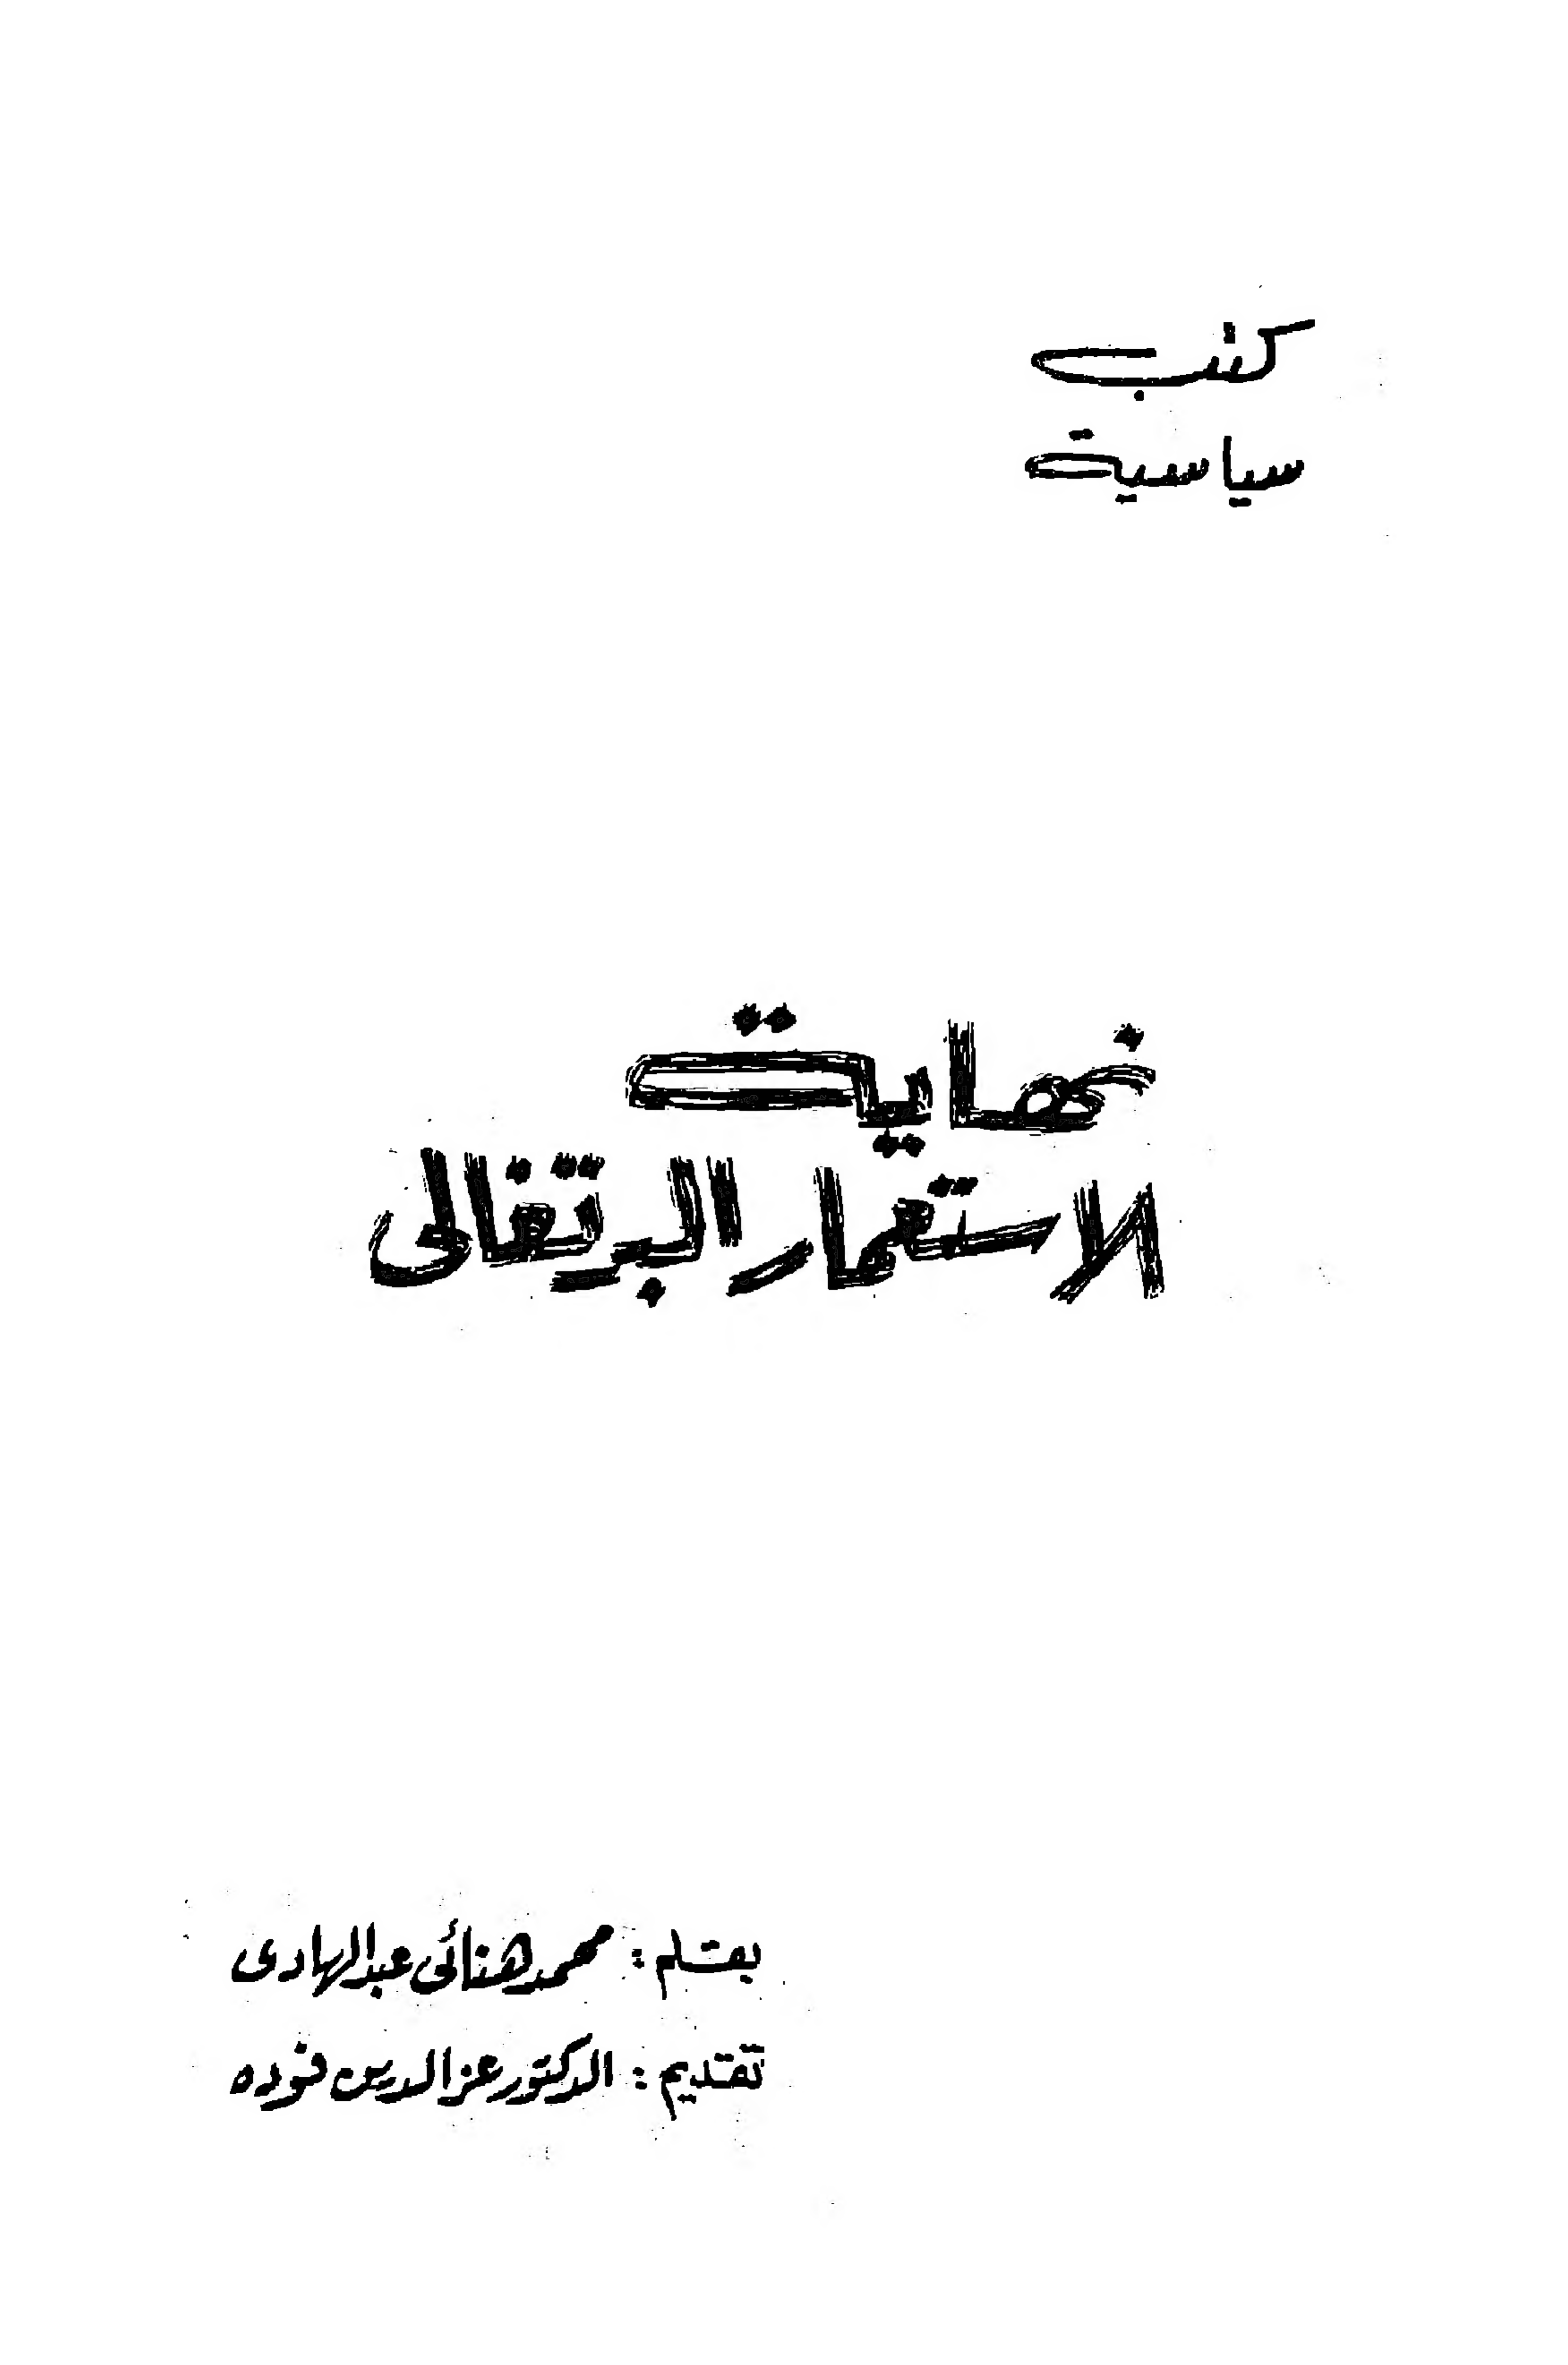 كتب
سياسية
نهاية
الاستعمار البرتغالى
بقلم : محمد هنائى عبد الهادى
تقديم : الدكتور عز الدين فوده